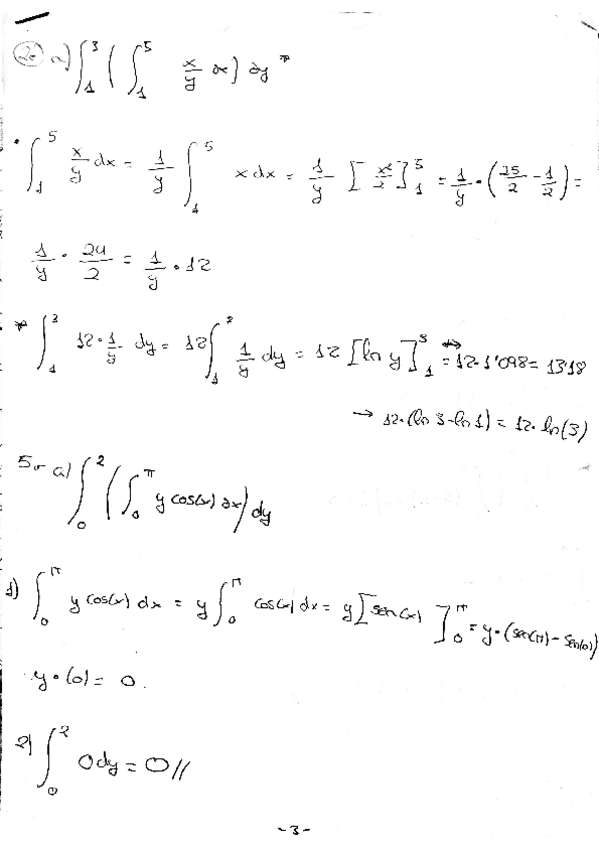 2o a) ∫₁³ ( ∫₁⁵ x/y ∂x) ∂y *
• ∫₁⁵ x/y dx = 1/y ∫₁⁵ x dx = 1/y [x²/2]₁⁵ = 1/y • (25/2 - 1/2) =
1/y · 24/2 = 1/y • 12
* ∫₁³ 12·1/y dy = 12 ∫₁³ 1/y dy = 12 [ln y]₁³ = 12·1'098 = 13'18
→ 12·(ln 3 - ln 1) = 12· ln(3)
5- a) ∫₀² ( ∫₀^π y cos(x) ∂x) dy
1) ∫₀^π y cos(x) dx = y ∫₀^π cos(x) dx = y [sen(x)]₀^π = y • (sen(π) - sen(0))
y • (0) = 0.
2) ∫₀² 0 dy = 0 //
-3-